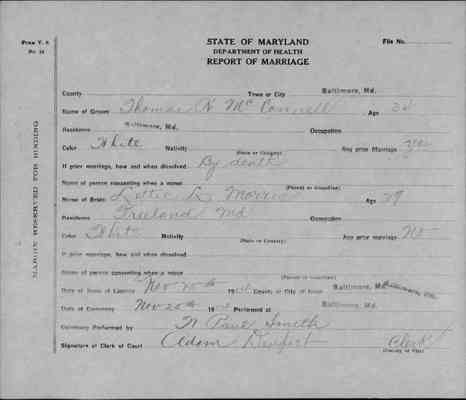 Form V. S.
STATE OF MARYLAND
File No.
DEPARTMENT OF HEALTH
REPORT OF MARRIAGE
County Town or City Baltimore, Md.
Name of Groom Thomas N Mc Connell Age
Residence Baltimore, Md. Occupation
Color White Nativity (State or Country) Any prior Marriage Yes
If prior marriage, how and when dissolved By death
Name of person consenting when a minor (Parent or Guardian)
Name of Bride Lottie L. Morris Age 29
Residence Freeland Md Occupation
Color White Nativity (State or Country) Any prior marriage No
If prior marriage, how and when dissolved
Name of person consenting when a minor (Parent or Guardian)
Date of Issue of License Nov 20th County or City of Issue Baltimore, Md.
Date of Ceremony Nov 20th Performed at Baltimore, Md.
Ceremony Performed by Smith
Signature of Clerk of Court Adam Deupert Clerk
(County or City)
MARGIN RESERVED FOR BINDING